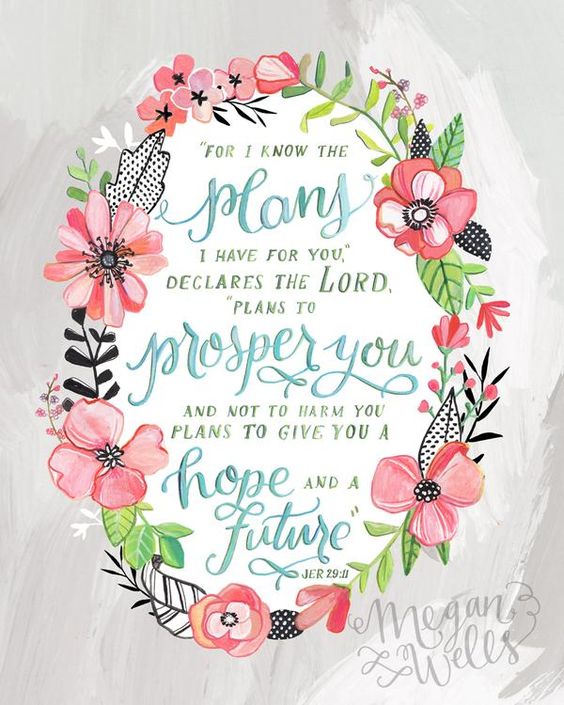 "FOR I KNOW THE
plans
I HAVE FOR YOU,"
DECLARES THE LORD,
"PLANS TO
prosper you
AND NOT TO HARM YOU
PLANS TO GIVE YOU A
hope AND A
future"
JER 29:11
Megan
Wells